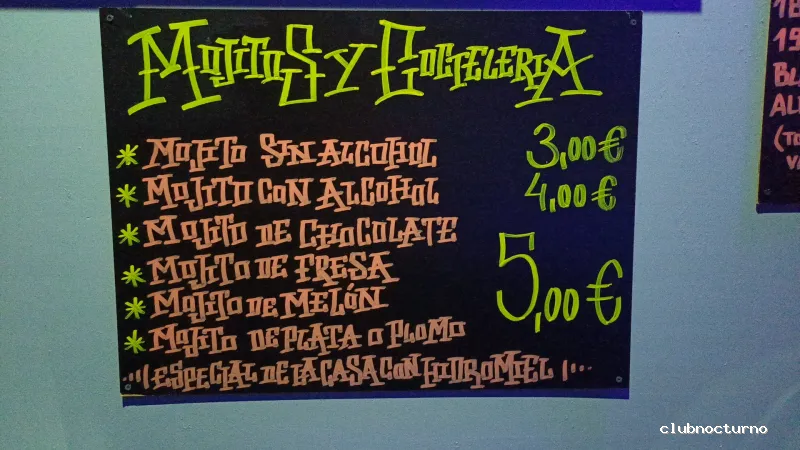 MOJITOS Y COCTELERIA
* MOJITO SIN ALCOHOL 3,00€
* MOJITO CON ALCOHOL 4,00€
* MOJITO DE CHOCOLATE
* MOJITO DE FRESA
* MOJITO DE MELÓN
* MOJITO DE PLATA O PLOMO
5,00€
¡¡¡ESPECIAL DE LA CASA CON HIDROMIEL!...
18
19
BL
ALI
(TO
V
clubnocturno